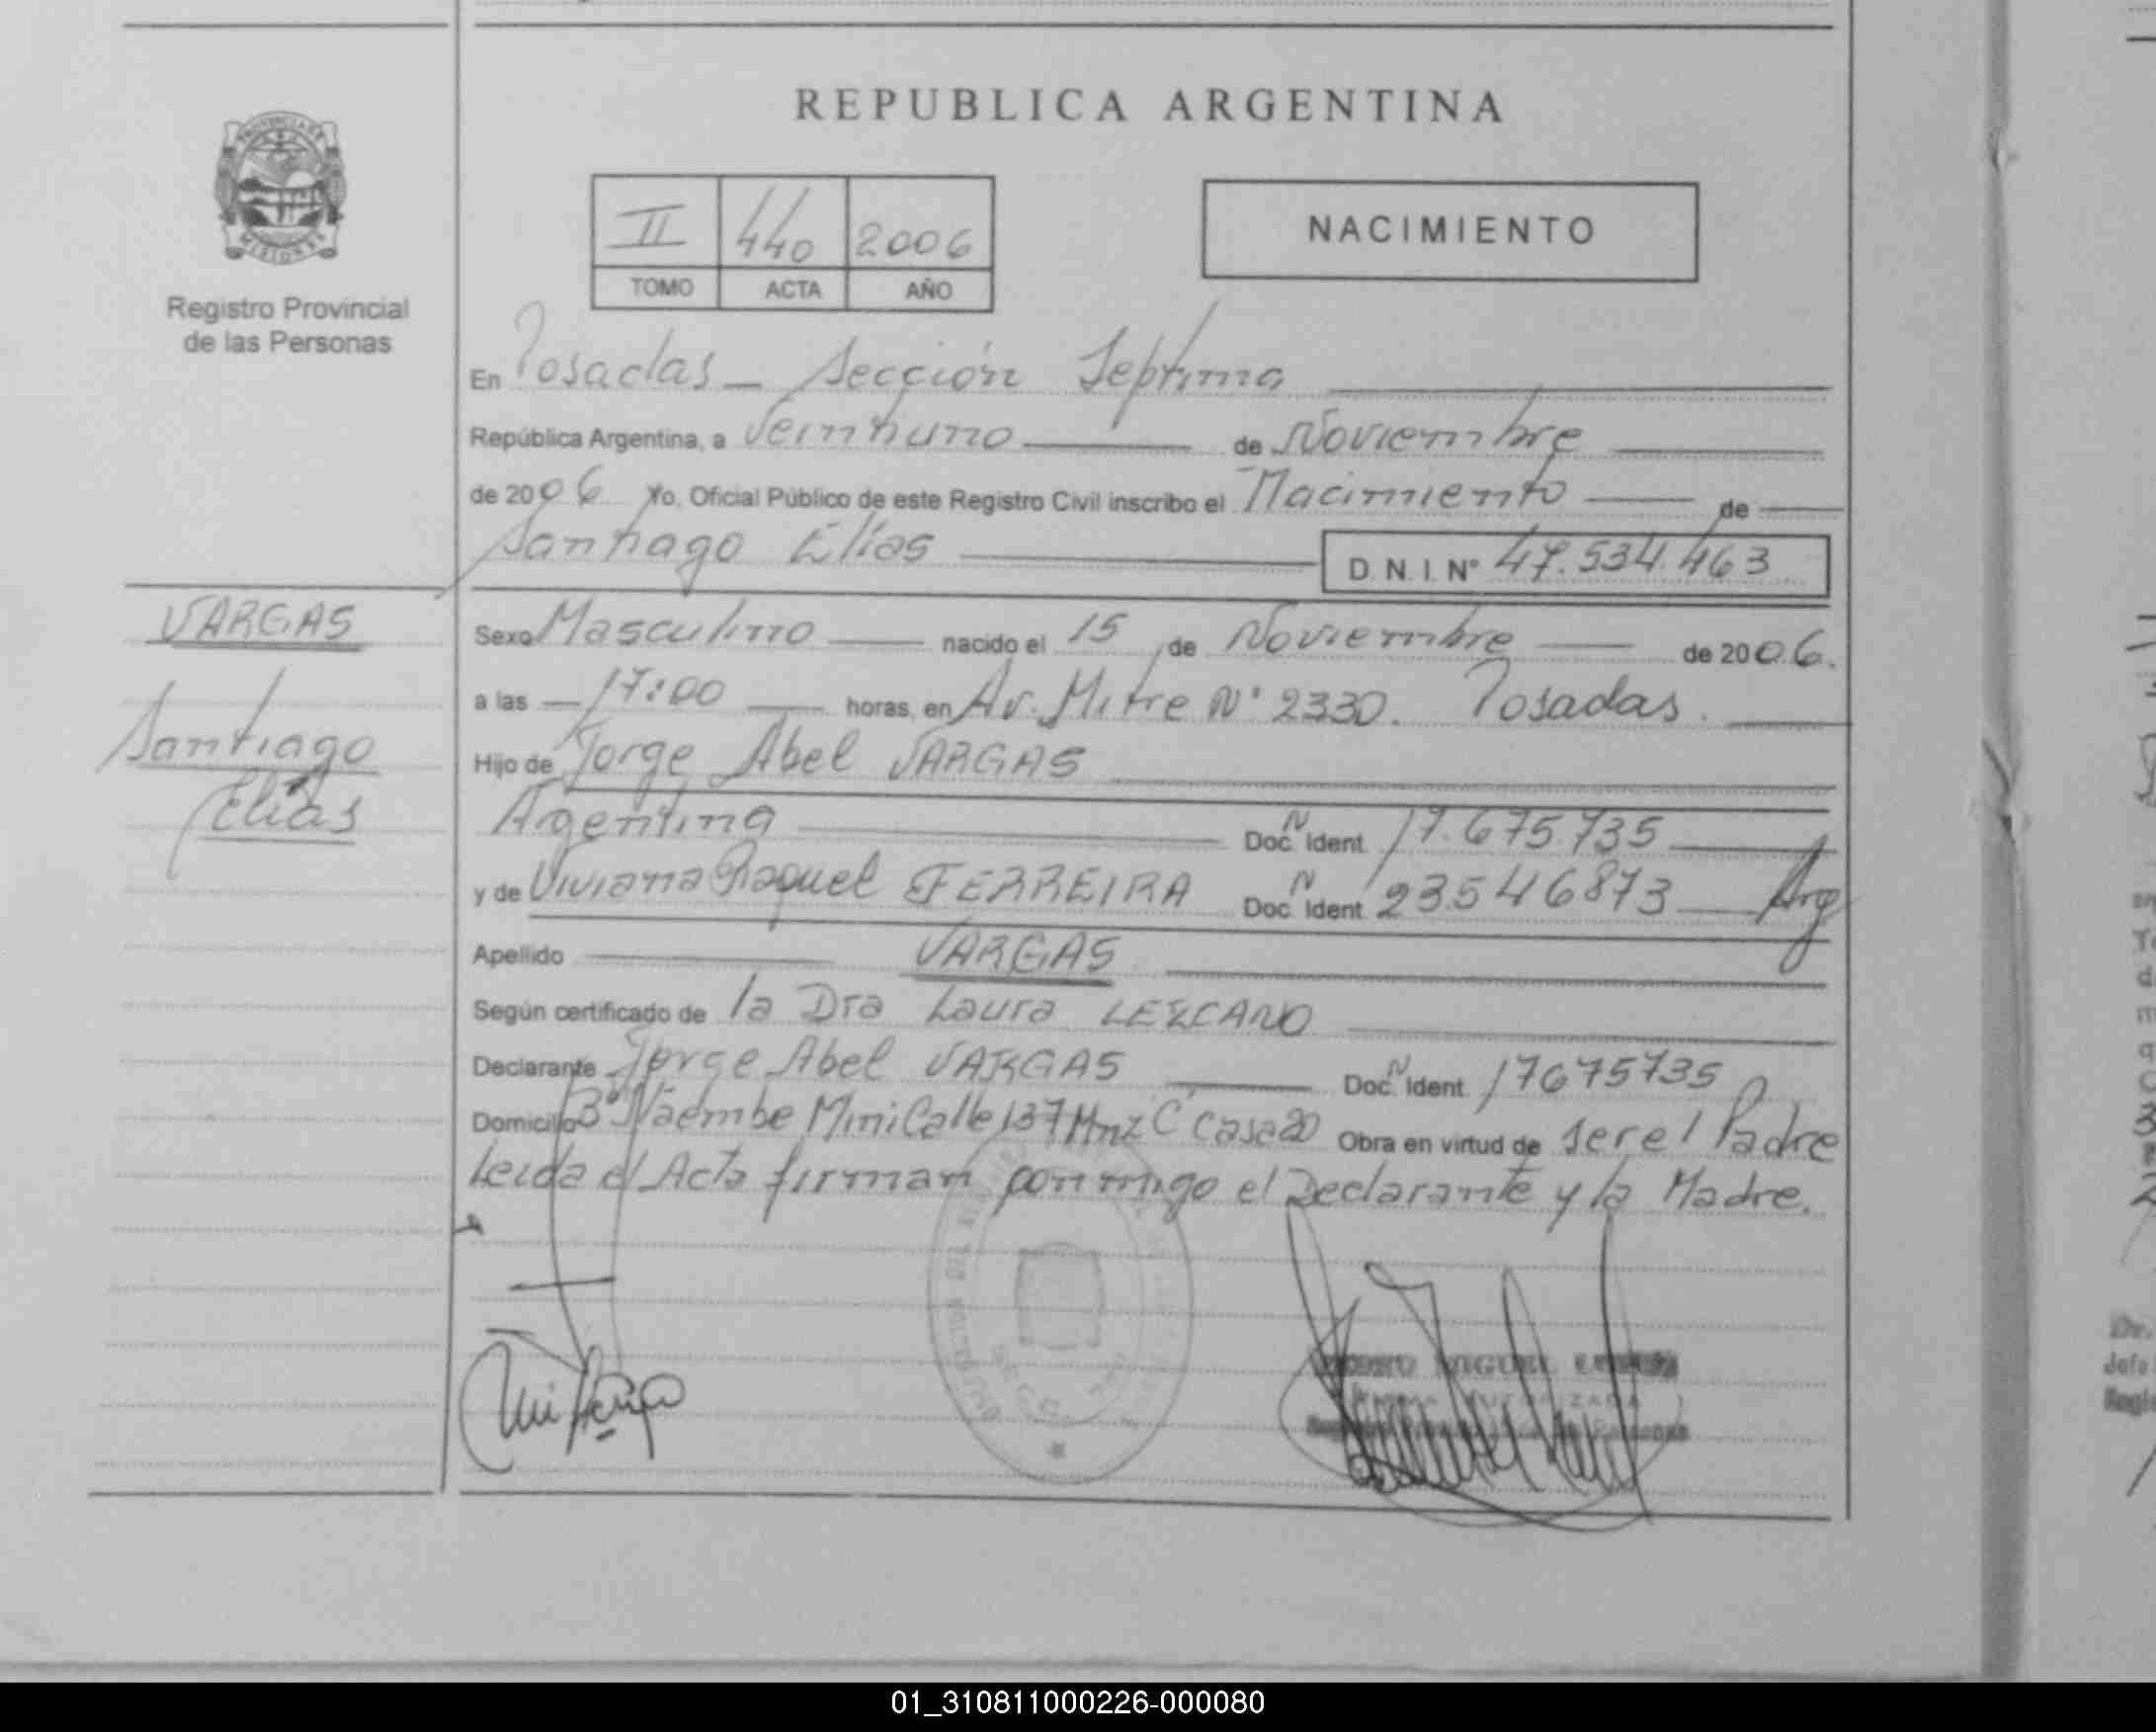 REPUBLICA ARGENTINA
PROVINCIA DE
MISIONES
Registro Provincial
de las Personas
II 440 2006
TOMO ACTA AÑO
NACIMIENTO
En Posadas - Sección Septima
República Argentina, a Veintiuno de Noviembre
de 2006 Yo, Oficial Público de este Registro Civil inscribo el Nacimiento de
Santiago Elías
D.N.I. Nº 47.534.463
VARGAS
Santiago
Elías
Sexo Masculino nacido el 15 de Noviembre de 2006.
a las 17:00 horas, en Av. Mitre Nº 2330. Posadas.
Hijo de Jorge Abel VARGAS
Argentina Doc. N Ident. 17.675.735
y de Viviana Raquel FERREIRA Doc. N Ident. 23546873 Arg
Apellido VARGAS
Según certificado de la Dra Laura LEZCANO
Declarante Jorge Abel VARGAS Doc. N Ident. 17675735
Domicilio Mini Calle 137 Mnz C Casa 20 Obra en virtud de ser el Padre
Leida el Acta firman conmigo el Declarante y la Madre.
MIGUEL
01_310811000226-000080